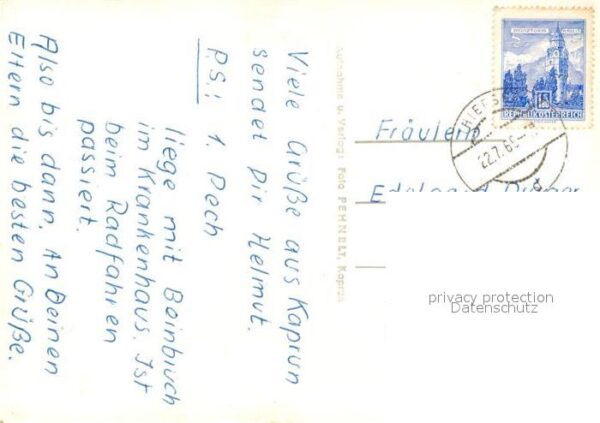 Viele Grüße aus Kaprun
sendet Dir Helmut.
P.S.: 1. Pech
liege mit Beinbruch
im Krankenhaus. Ist
beim Radfahren
passiert.
Also bis dann. An Deinen
Eltern die besten Grüße.
Aufnahme u. Verlag: Foto PEHNELT, Kaprun
REPUBLIK ÖSTERREICH
22.7.6
Fräulein
privacy protection
Datenschutz